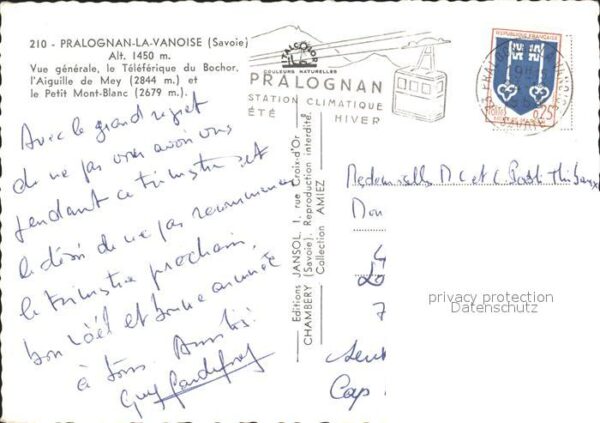 210 - PRALOGNAN-LA-VANOISE (Savoie)
Alt. 1450 m.
Vue générale, le Téléférique du Bochor,
l'Aiguille de Mey (2844 m.) et
le Petit Mont-Blanc (2679 m.).
Avec le grand regret
de ne pas vous avoir vus
pendant ce trimestre et
le désir de ne pas recommencer
le trimestre prochain,
bon Noël et bonne année
à tous. Amitiés
Guy
Editions JANSOL, 1, rue Croix-d'Or
CHAMBERY (Savoie). Reproduction interdite.
Collection AMIEZ
COULEURS NATURELLES
PRALOGNAN
STATION CLIMATIQUE
ÉTÉ HIVER
REPUBLIQUE FRANÇAISE
POSTES
0,25
SAVOIE
Mesdemoiselles M C et C
Cap
privacy protection
Datenschutz